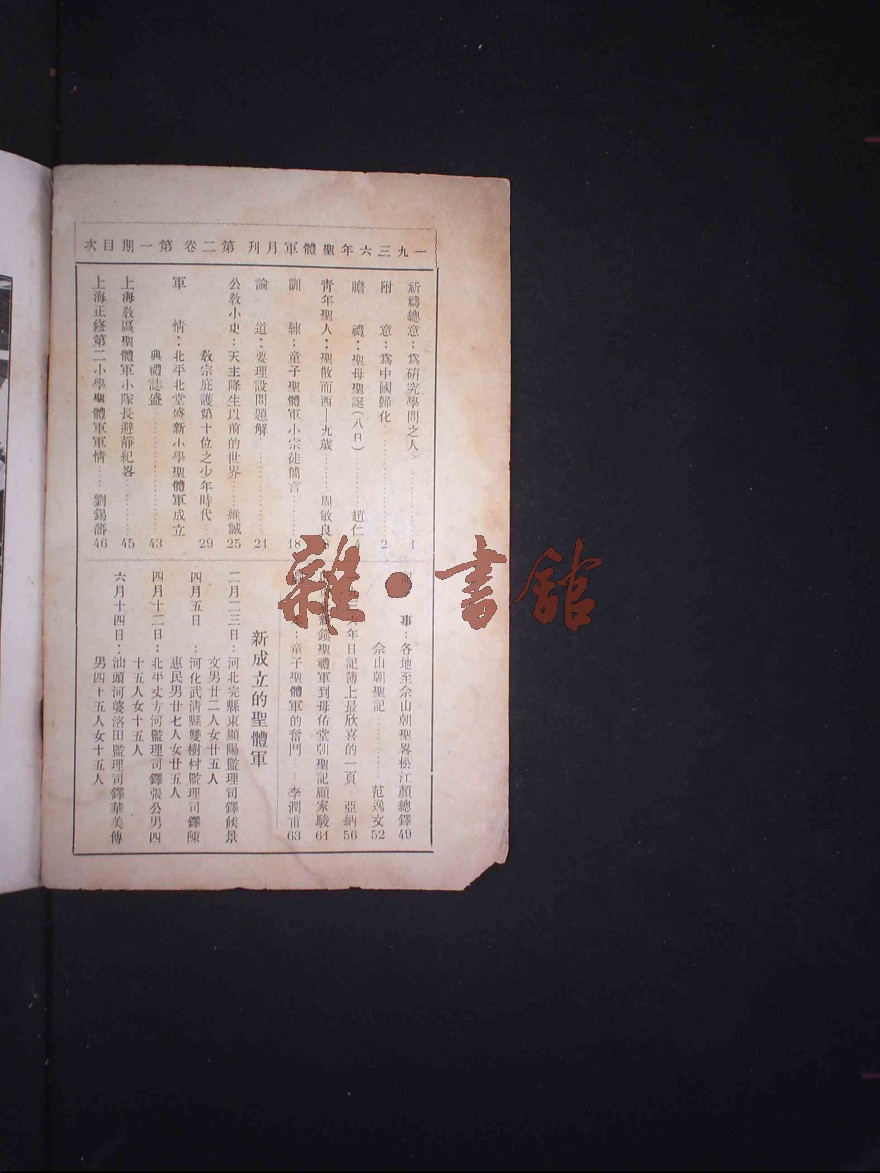 一九三六年聖體軍月刊 第二卷 第一期目次
祈禱總意：爲研究學問之人…………1
附　意：爲中國歸化…………2
瞻　禮：聖母聖誕（八日）…………趙仁 4
青年聖人：聖散而西—九歲………周敏良
訓　練：童子聖體軍小宗徒簡言………18
論　道：要理設問題解…………21
公敎小史：天主降生以前的世界……維誠 25
敎宗庇護第十位之少年時代…29
軍　情：北平北堂盛新小學聖體軍成立
典禮誌盛…………43
上海敎區聖體軍小隊長避靜紀畧………45
上海正修第二小學聖體軍軍情……劉錫蕃 46
事：各地至佘山朝聖畧松江顏總鐸 49
佘山朝聖記…………范逸文 52
年日記薄上最欣喜的一頁 亞納 56
鎮聖禮軍到母佑堂朝聖記顧家駿 61
：童子聖體軍的奮鬥……李潤甫 63
新成立的聖體軍
二月二三日：河北完縣東顯陽監理司鐸候景
文男廿二人女廿五人
四月五日：河化武清縣雙樹村監理司鐸陳
惠民男廿七人女廿五人
四月十二日：北平丈方河監理司鐸張公男四
十五人女十五人
六月十四日：汕頭河婆洛田監理司鐸華美傳
男四十五人女十五人
雜・書館